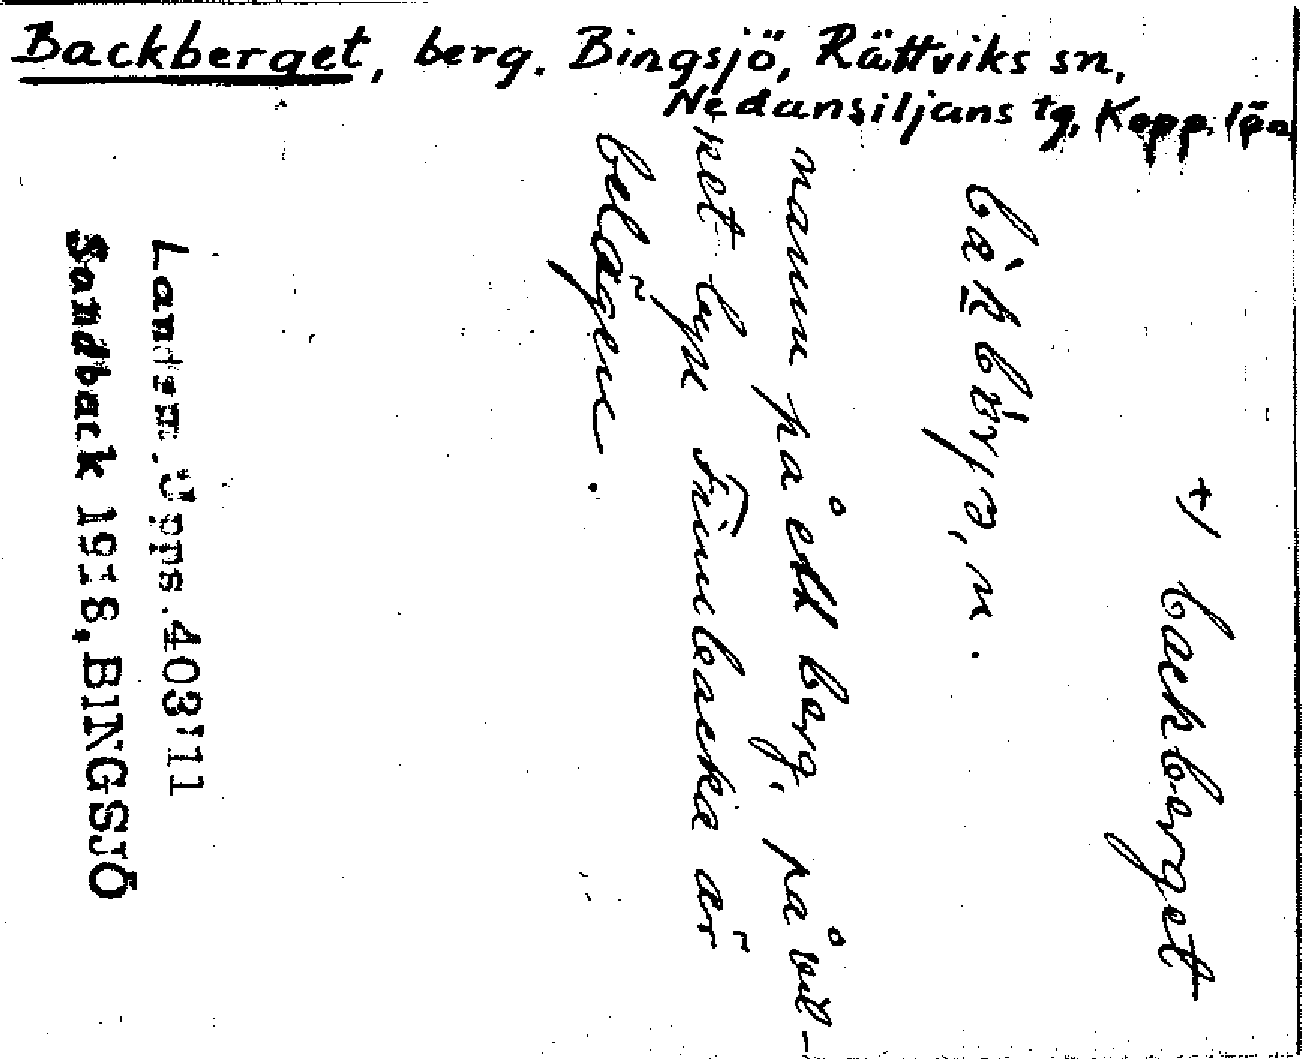 Backberget, berg. Bingsjö, Rättviks sn,
Nedansiljans tg, Kopp. län
+/ backberget
namn på ett berg, på vil-
ket byn Finnbacka är
belägen.
Landsm. Upps. 403:11
Sandback 1918, BINGSJÖ